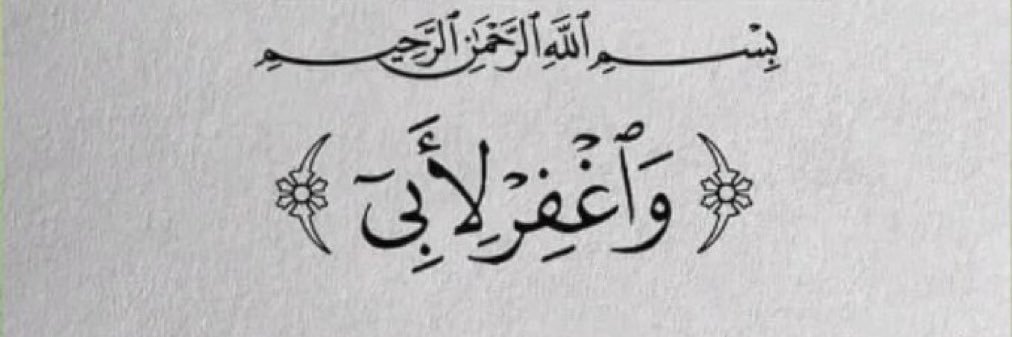 بِسْمِ ٱللَّهِ ٱلرَّحْمَٰنِ ٱلرَّحِيمِ
﴿ وَٱغْفِرْ لِأَبِىٓ ﴾